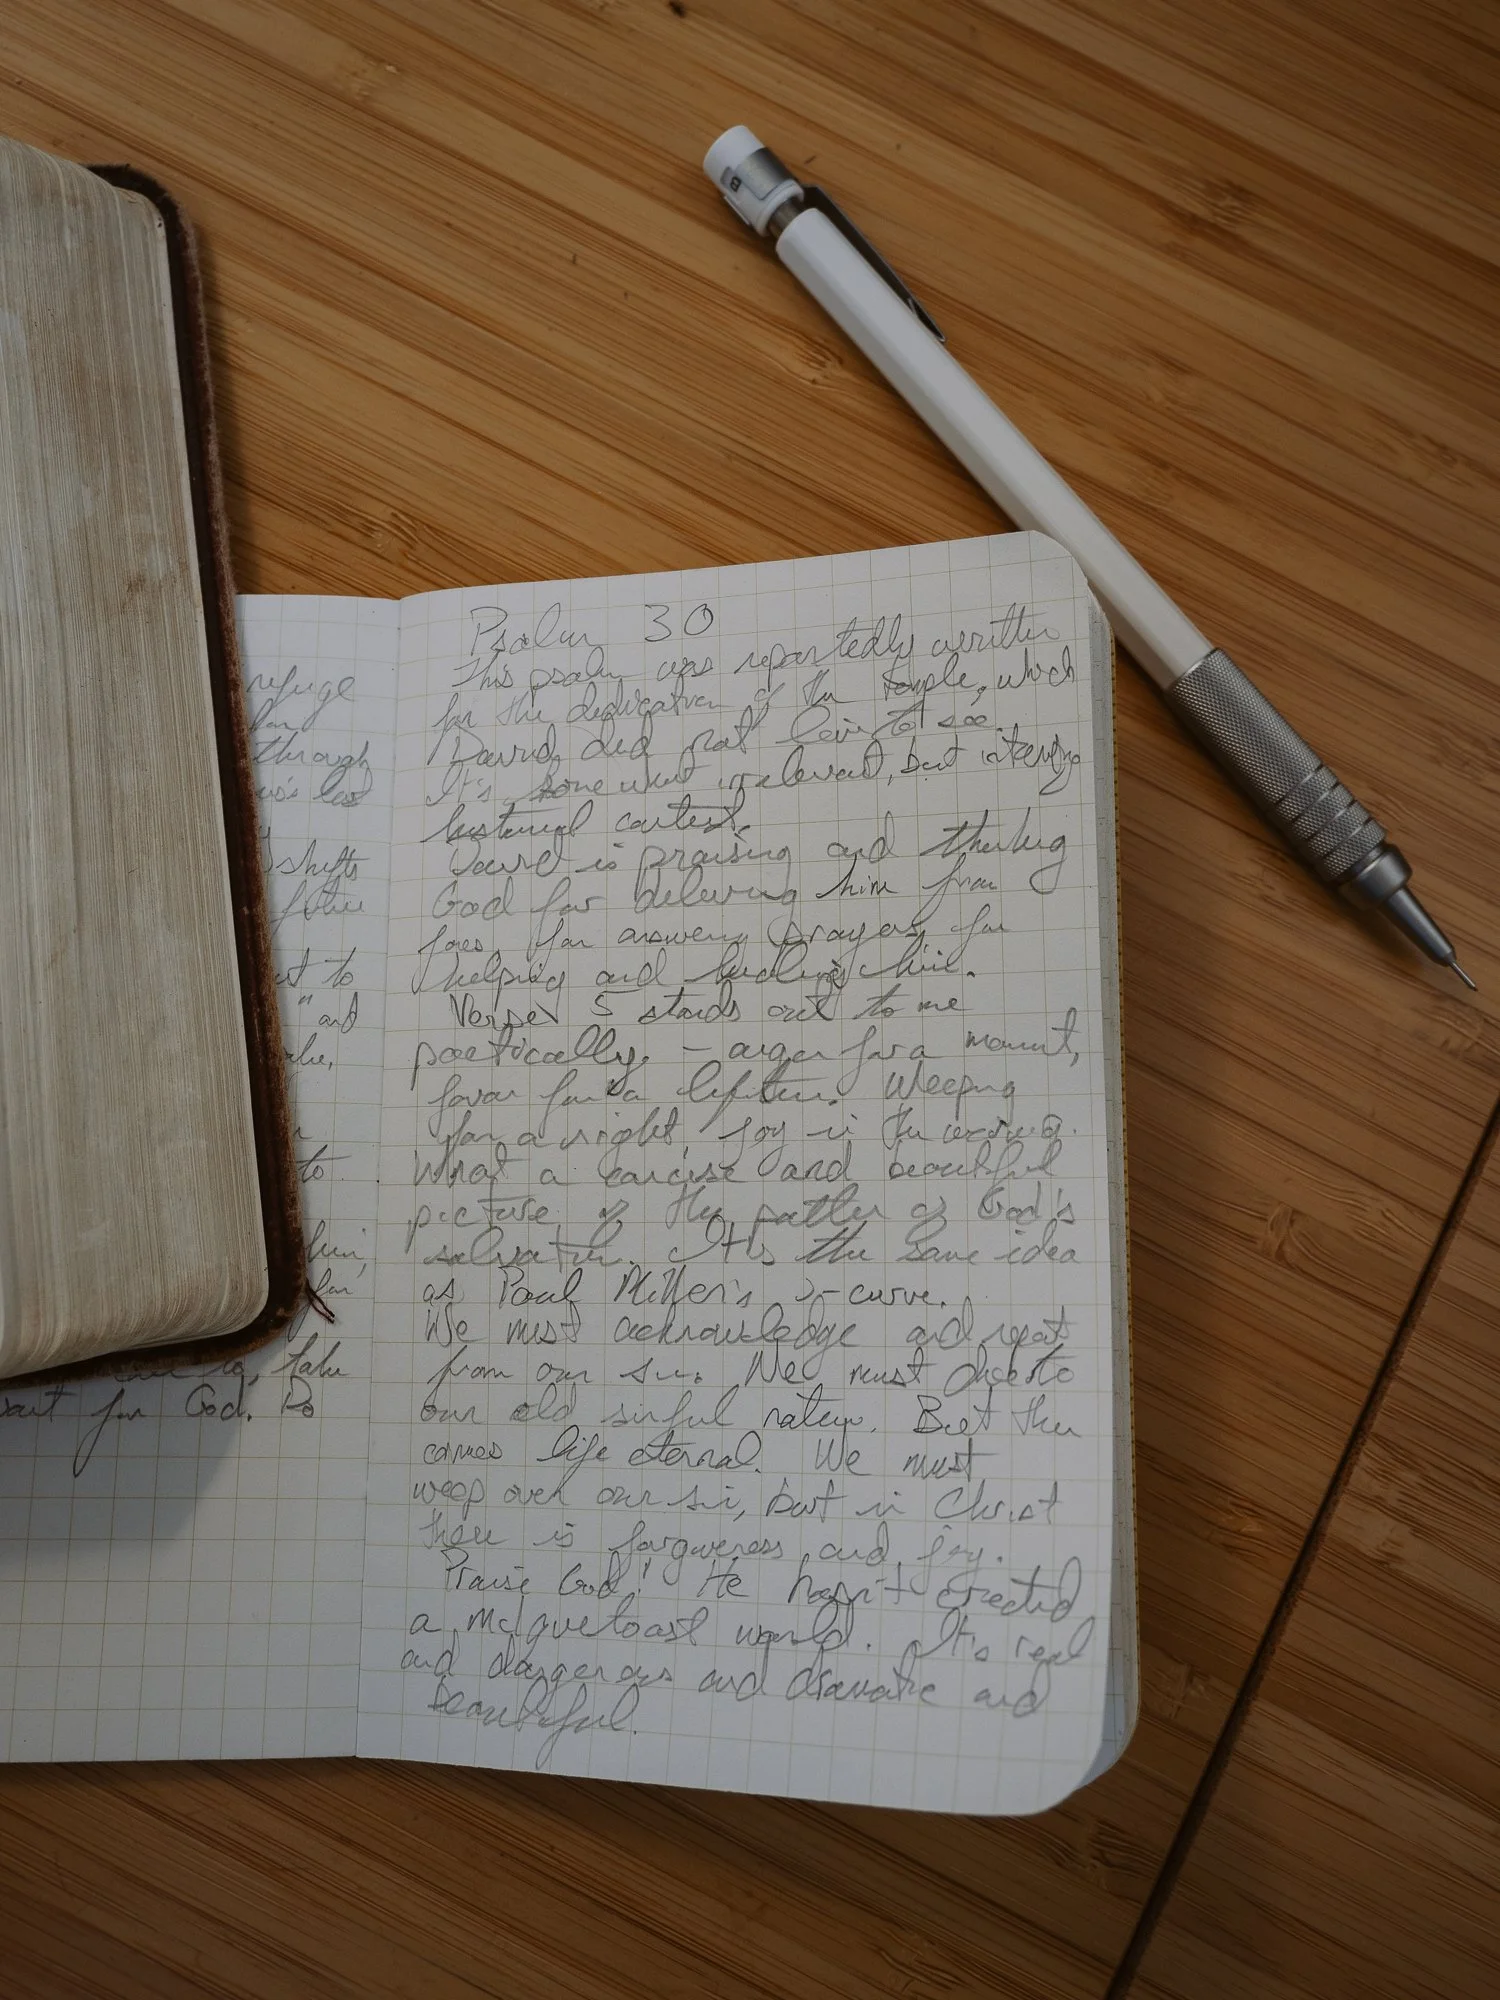 refuge
through
shifts
to
" and
to
him,
for
, take
wait for God. Do
Psalm 30
This psalm was reportedly written
for the dedication of the temple, which
David did not live to see.
It's somewhat irrelevant, but interesting
historical context.
David is praising and thanking
God for delivering him from
foes, for answering prayers, for
helping and healing him.
Verse 5 stands out to me
poetically. - anger for a moment,
favor for a lifetime. Weeping
for a night, joy in the morning.
What a concise and beautiful
picture of the pattern of God's
salvation. It is the same idea
as Paul Miller's J-curve.
We must acknowledge and repent
from our sin. We must die to
our old sinful nature. But then
comes life eternal. We must
weep over our sin, but in Christ
there is forgiveness and joy.
Praise God! He hasn't created
a milquetoast world. It's real
and dangerous and dramatic and
beautiful.